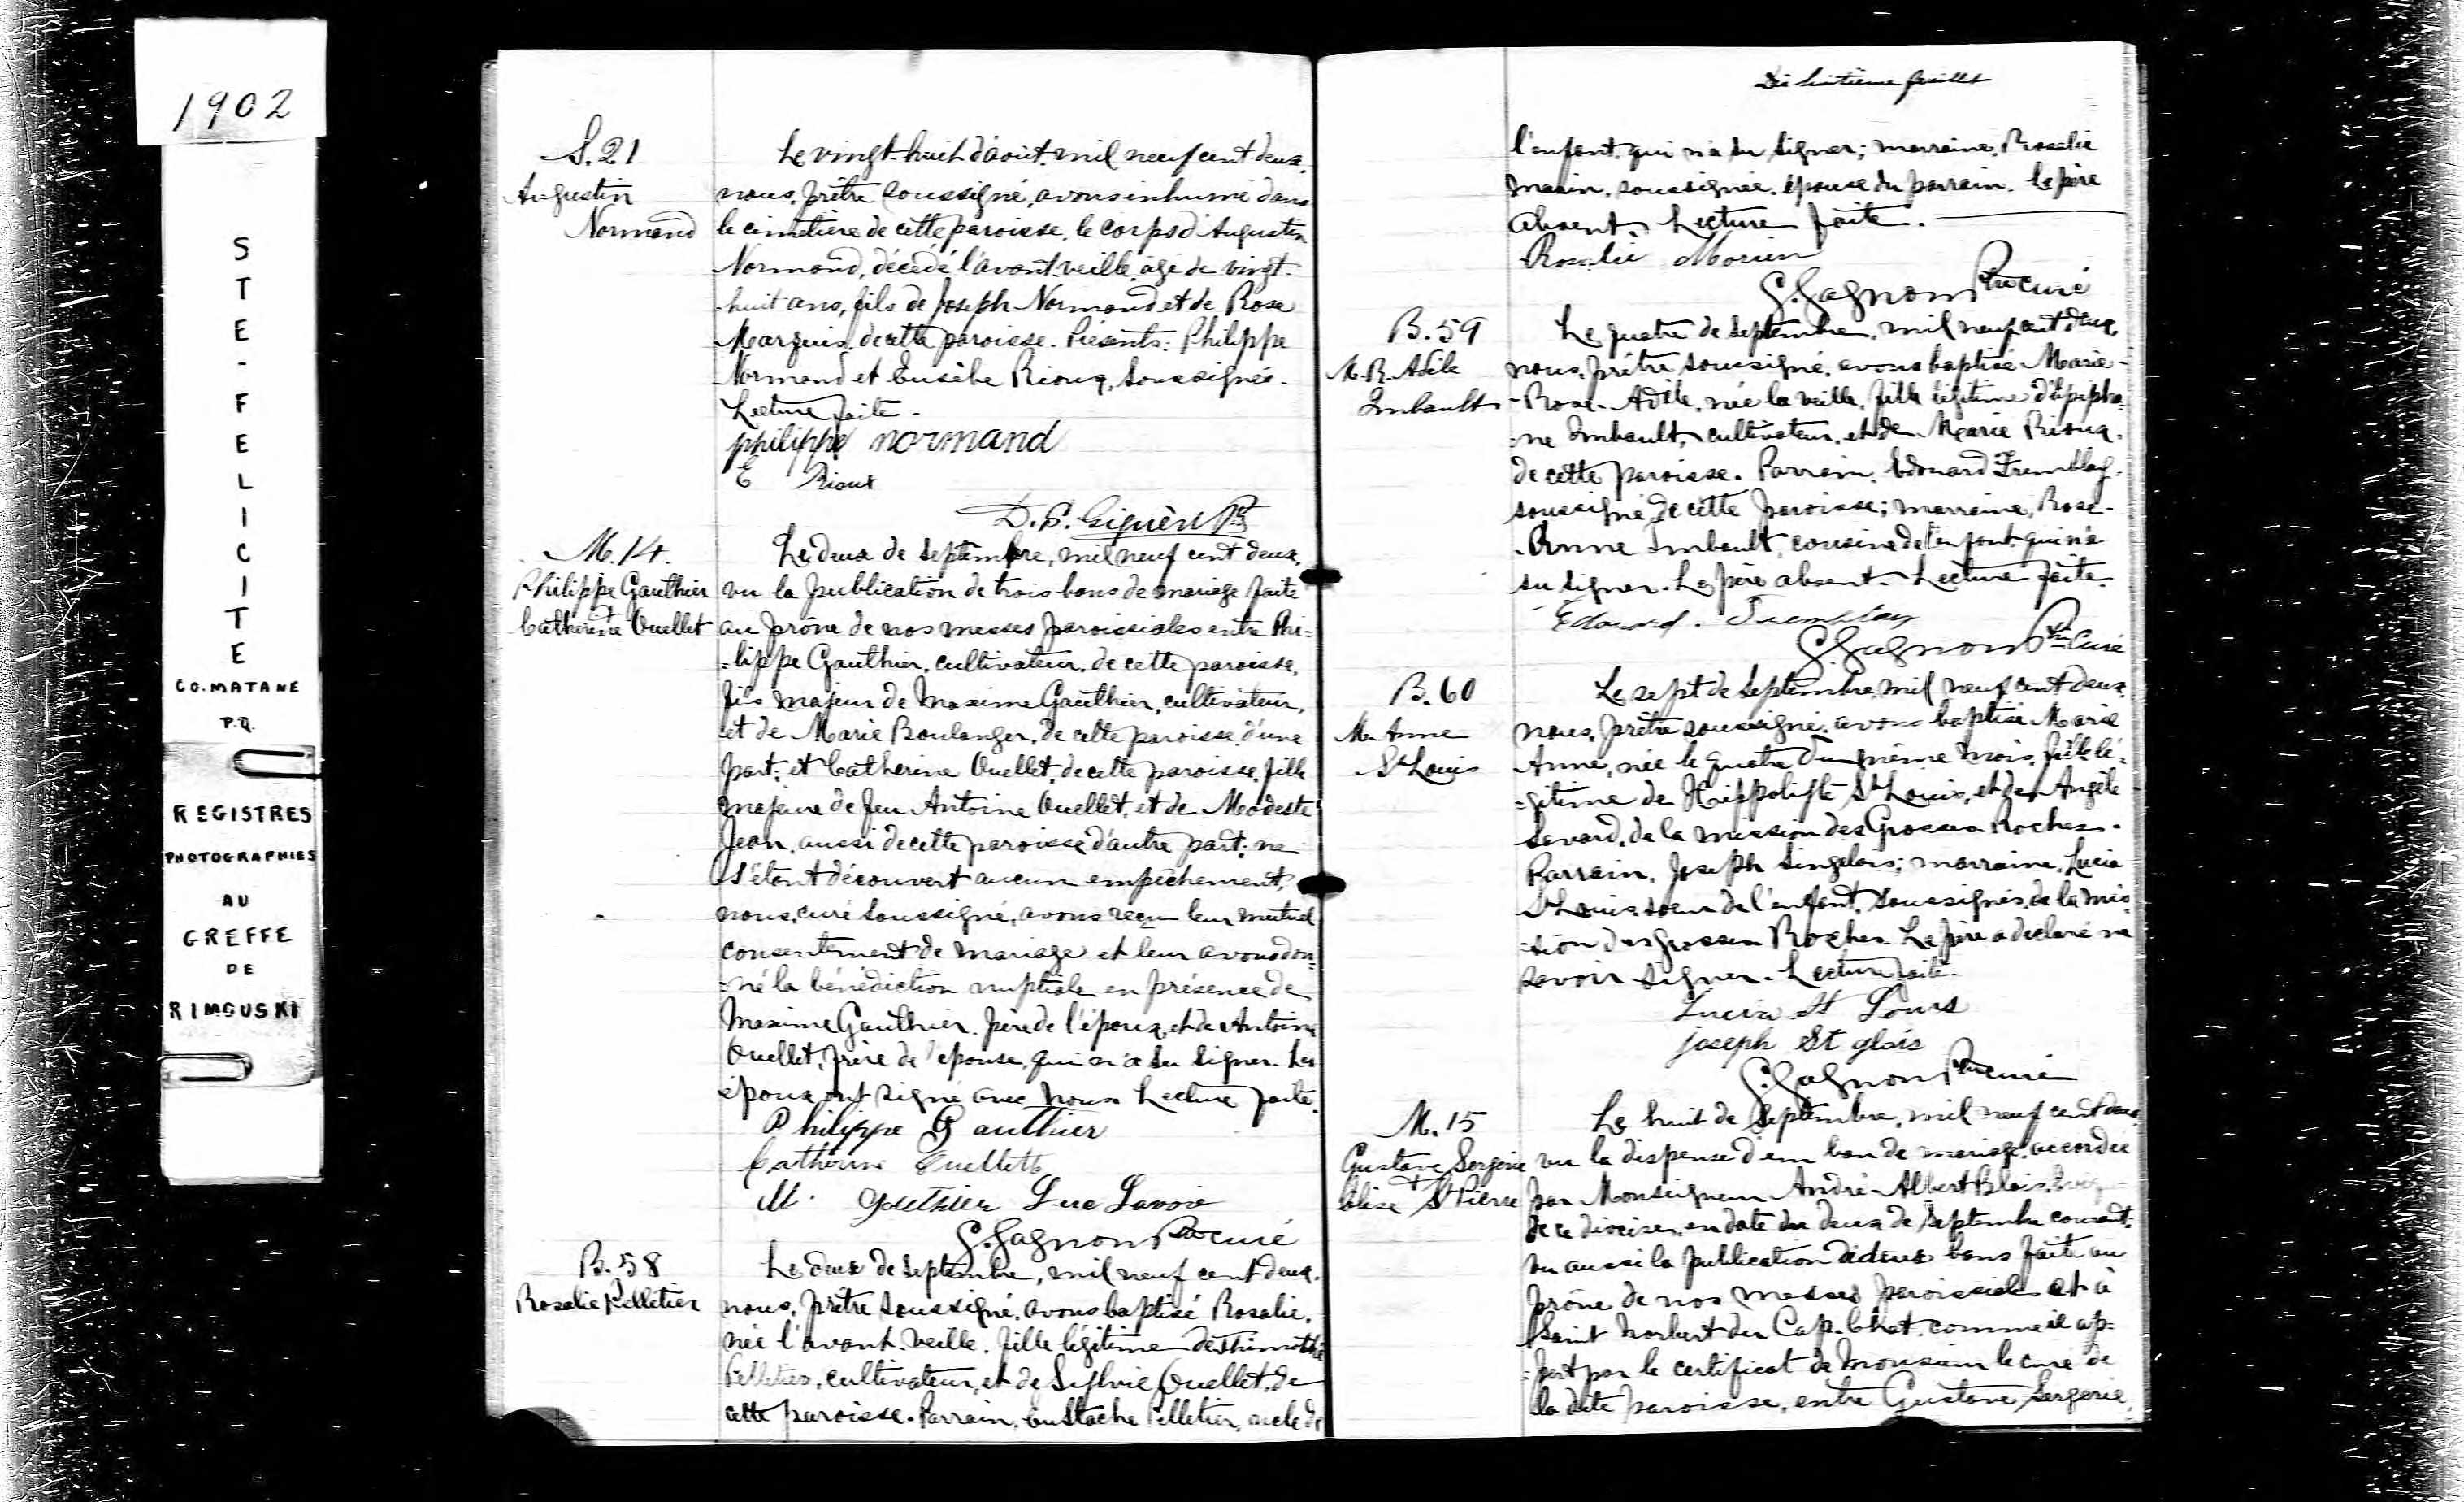 1902
STE-FELICITE
CO. MATANE
P.Q.
REGISTRES
PHOTOGRAPHIES
AU
GREFFE
DE
RIMOUSKI
S. 21
Augustin
Normand
Le vingt-huit d'août, mil neuf cent deux,
nous, prêtre soussigné, avons inhumé dans
le cimetière de cette paroisse, le corps d'Augustin
Normand, décédé l'avant-veille, âgé de vingt-
huit ans, fils de Joseph Normand et de Rose
Marquis, de cette paroisse. Présents: Philippe
Normand et Eusèbe Rioux, soussignés.
Lecture faite.
philippe normand
E Rioux
D. Giguère Ptre
M. 14.
Philippe Gauthier
et
Catherine Ouellet
Le deux de septembre, mil neuf cent deux,
vu la publication de trois bans de mariage faite
au prône de nos messes paroissiales entre Phi=
=lippe Gauthier, cultivateur, de cette paroisse,
fils majeur de Maxime Gauthier, cultivateur,
et de Marie Boulanger, de cette paroisse d'une
part; et Catherine Ouellet, de cette paroisse, fille
majeure de feu Antoine Ouellet, et de Modeste
Jean, aussi de cette paroisse d'autre part; ne
s'étant découvert aucun empêchement,
nous, curé soussigné, avons reçu leur mutuel
consentement de mariage et leur avons don=
=né la bénédiction nuptiale en présence de
Maxime Gauthier, père de l'époux, et de Antoine
Ouellet, frère de l'épouse, qui n'a su signer. Les
époux ont signé avec nous. Lecture faite.
Philippe Gauthier
Catherine Ouellette
M. Gauthier Luc Lavoie
G. Gagnon Ptre curé
B. 58
Rosalie Pelletier
Le deux de septembre, mil neuf cent deux,
nous, prêtre soussigné, avons baptisé Rosalie,
née l'avant-veille, fille légitime de Thimothé
Pelletier, cultivateur, et de Sylvie Ouellet, de
cette paroisse. Parrain, Eustache Pelletier, oncle de
Dix huitième feuillet
l'enfant, qui n'a su signer; marraine, Rosalie
Morin, soussignée, épouse du parrain. Le père
absent. Lecture faite.
Rosalie Morin
G. Gagnon Ptre curé
B. 59
M. R. Adèle
Imbault
Le quatre de septembre, mil neuf cent deux,
nous, prêtre soussigné, avons baptisé Marie-
-Rose-Adèle, née la veille, fille légitime d'Epipha=
=ne Imbault, cultivateur, et de Marie Rioux,
de cette paroisse. Parrain, Edouard Tremblay,
soussigné, de cette paroisse; marraine, Rose-
-Anne Imbault, cousine de l'enfant, qui n'a
su signer. Le père absent. Lecture faite.
Edouard. Tremblay
G. Gagnon Ptre Curé
B. 60
M. Anne
St Louis
Le sept de septembre, mil neuf cent deux,
nous, prêtre soussigné, avons baptisé Marie
Anne, née le quatre du même mois, fille lé=
=gitime de Hippolyte St Louis, et de Angèle
Savard, de la mission des Grosses Roches.
Parrain, Joseph Singelais; marraine, Lucia
St Louis, soeur de l'enfant, soussignés, de la mis=
=sion des grosses Roches. Le père a déclaré ne
savoir signer. Lecture faite.
Lucia St Louis
joseph St glais
G. Gagnon Ptre curé
M. 15
Gustave Sergerie
et
Elise St Pierre
Le huit de septembre, mil neuf cent deux,
vu la dispense d'un ban de mariage, accordée
par Monseigneur André-Albert Blais,
de ce diocèse, en date du deux de septembre courant;
vu aussi la publication de deux bans faite au
prône de nos messes paroissiales et à
Saint Norbert du Cap-Chat, comme il ap=
=pert par le certificat de Monsieur le curé de
la dite paroisse, entre Gustave Sergerie,